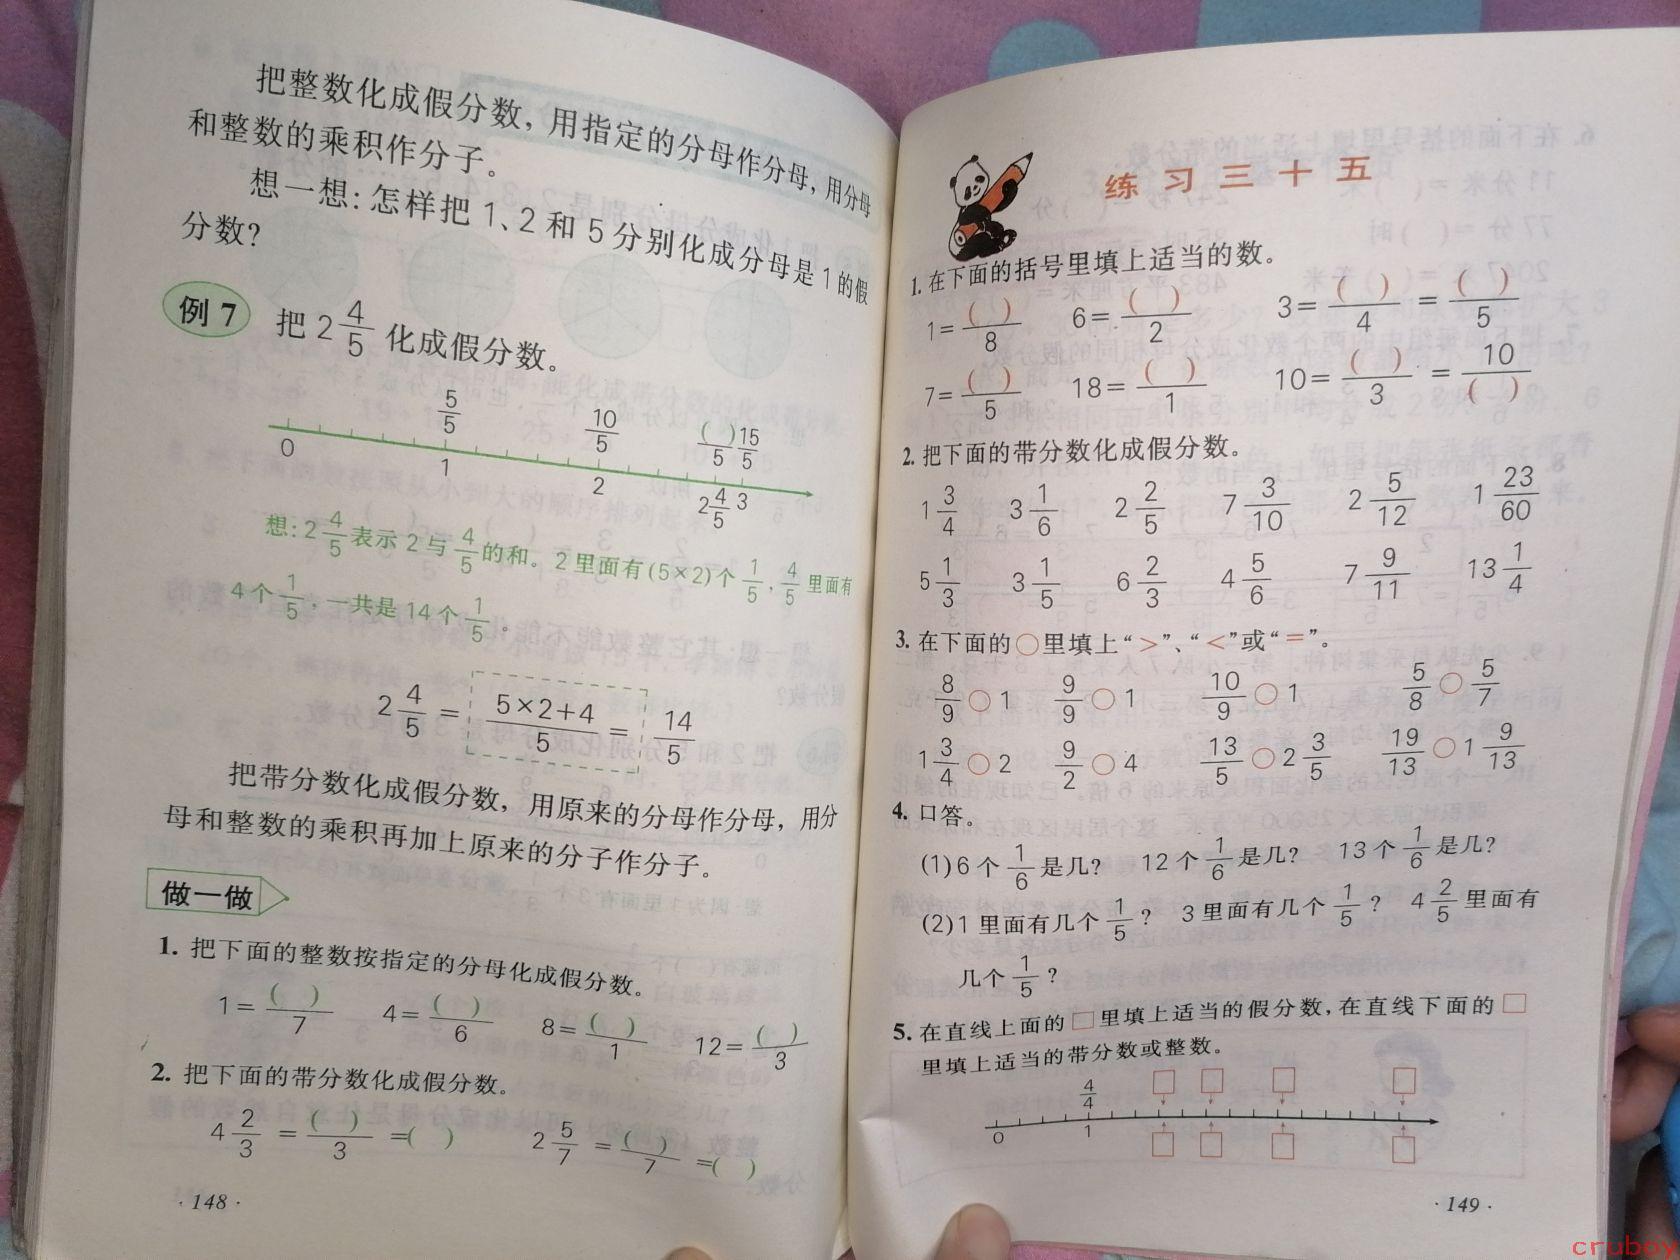 把整数化成假分数，用指定的分母作分母，用分母
和整数的乘积作分子。
想一想：怎样把 1、2 和 5 分别化成分母是 1 的假
分数？
例 7 把 2 4/5 化成假分数。
5/5 10/5 ( )/5 15/5
0 1 2 2 4/5 3
想：2 4/5 表示 2 与 4/5 的和。2 里面有 (5×2) 个 1/5，4/5 里面有
4 个 1/5，一共是 14 个 1/5。
2 4/5 = (5×2+4)/5 = 14/5
把带分数化成假分数，用原来的分母作分母，用分
母和整数的乘积再加上原来的分子作分子。
做一做
1. 把下面的整数按指定的分母化成假分数。
1=( )/7 4=( )/6 8=( )/1 12=( )/3
2. 把下面的带分数化成假分数。
4 2/3 =( )/3 =( ) 2 5/7 =( )/7 =( )
·148·
练习三十五
1. 在下面的括号里填上适当的数。
1=( )/8 6=( )/2 3=( )/4=( )/5
7=( )/5 18=( )/1 10=( )/3=10/( )
2. 把下面的带分数化成假分数。
1 3/4 3 1/6 2 2/5 7 3/10 2 5/12 1 23/60
5 1/3 3 1/5 6 2/3 4 5/6 7 9/11 13 1/4
3. 在下面的○里填上“>”、“<”或“=”。
8/9○1 9/9○1 10/9○1 5/8○5/7
1 3/4○2 9/2○4 13/5○2 3/5 19/13○1 9/13
4. 口答。
(1) 6 个 1/6 是几? 12 个 1/6 是几? 13 个 1/6 是几?
(2) 1 里面有几个 1/5 ? 3 里面有几个 1/5 ? 4 2/5 里面有
几个 1/5 ?
5. 在直线上面的□里填上适当的假分数，在直线下面的□
里填上适当的带分数或整数。
4/4 □ □ □ □
0 1 □ □ □ □
·149·
cruboy